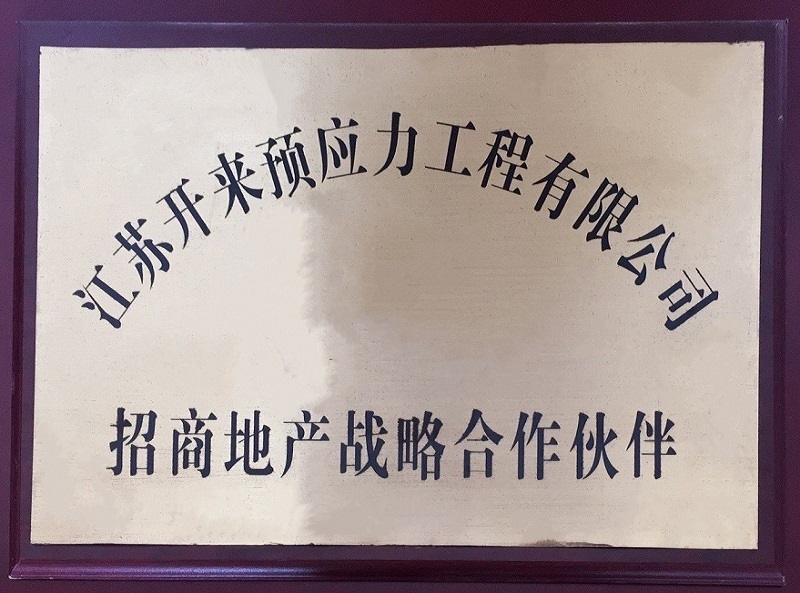 江苏开来预应力工程有限公司
招商地产战略合作伙伴